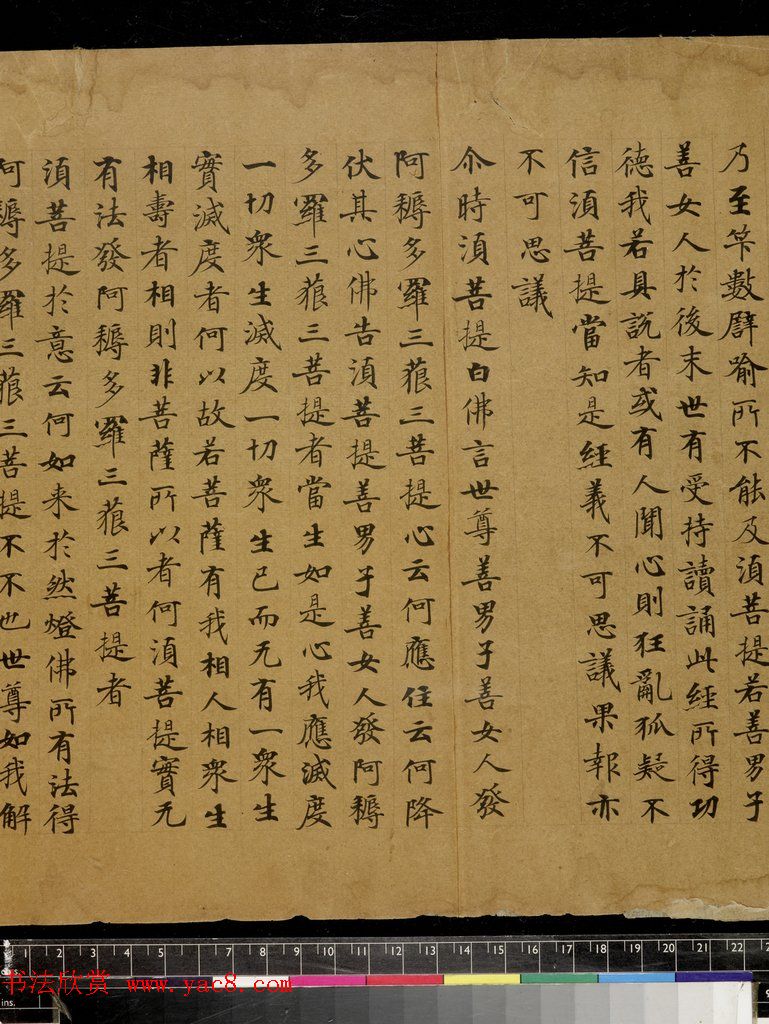 乃至筭數譬喻所不能及須菩提若善男子
善女人於後末世有受持讀誦此經所得功
德我若具說者或有人聞心則狂亂狐疑不
信須菩提當知是經義不可思議果報亦
不可思議
尒時須菩提白佛言世尊善男子善女人發
阿耨多羅三藐三菩提心云何應住云何降
伏其心佛告須菩提善男子善女人發阿耨
多羅三藐三菩提者當生如是心我應滅度
一切衆生滅度一切衆生已而无有一衆生
實滅度者何以故若菩薩有我相人相衆生
相壽者相則非菩薩所以者何須菩提實无
有法發阿耨多羅三藐三菩提者
須菩提於意云何如来於然燈佛所有法得
阿耨多羅三藐三菩提不不也世尊如我解
1 2 3 4 5 7 8 9 10 11 12 13 14 15 16 17 18 19 20 21 22 2
书法欣赏 www.yac8.com
ins.